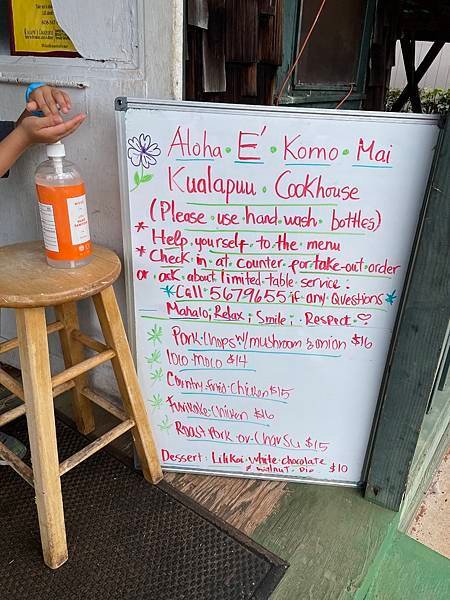 Aloha E' Komo Mai
Kualapuu Cookhouse
(Please use hand wash bottles)
* Help yourself to the menu
* Check in at counter for take-out order
or ask about limited table service.
*Call 5679655 if any Questions*
Mahalo; Relax; Smile; Respect. ♡
Pork-Chops w/mushroom & onion $16
loco moco $14
Country-fried-Chicken $15
Furikake-Chicken $16
Roast Pork-or-Char Su $15
Dessert: Lilikoi white chocolate
& walnut Pie $10